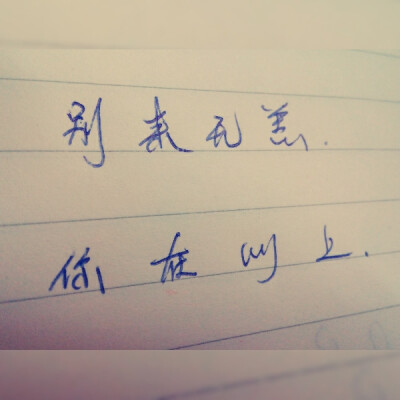 别来无恙.
你在心上.